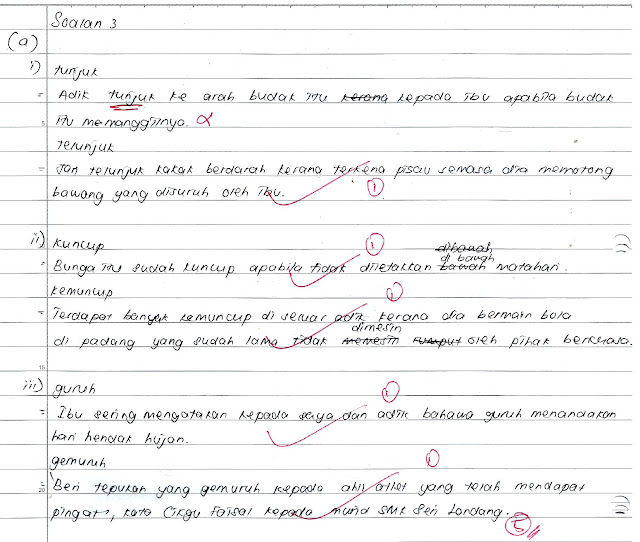 Soalan 3
(a)
i) tunjuk
= Adik tunjuk ke arah budak itu kerana kepada ibu apabila budak
5 itu memanggilnya. α
telunjuk
= Jari telunjuk kakak berdarah kerana terkena pisau semasa dia memotong
bawang yang disuruh oleh ibu. 1
ii) kuncup 1 dibawah
di bawah
= Bunga itu sudah kuncup apabila tidak diletakkan bawah matahari.
kemuncup 1
= Terdapat banyak kemuncup di seluar adik kerana dia bermain bola
dimesin
di padang yang sudah lama tidak memesin rumput oleh pihak berkuasa.
15
iii) guruh 1
= Ibu sering mengatakan kepada saya dan adik bahawa guruh menandakan
hari hendak hujan.
gemuruh 1
= "Beri tepukan yang gemuruh kepada atlet yang telah mendapat
20
pingat", kata Cikgu Faisal kepada murid SMK Seri Londang. 5